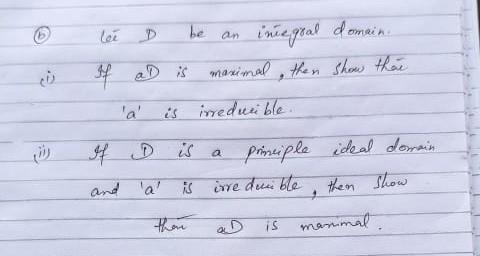 (b) Let D be an integral domain.
(i) If aD is maximal, then show that
'a' is irreducible.
(ii) If D is a principle ideal domain
and 'a' is irreducible, then show
that aD is maximal.